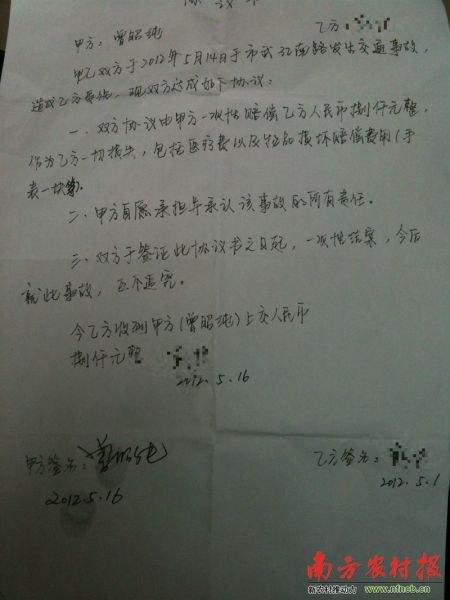 协议书
甲方：曾昭纯 乙方：
甲乙双方于2012年5月14日于市武江南路发生交通事故，
造成乙方受伤，现双方达成如下协议：
一、双方协议由甲方一次性赔偿乙方人民币捌仟元整，
作为乙方一切损失，包括医疗费以及物品损坏赔偿费用（手
表一块）。
二、甲方自愿承担并承认该事故的所有责任。
三、双方于签证此协议书之日起，一次性结案，今后
就此事故，互不追究。
今乙方收到甲方（曾昭纯）上交人民币
捌仟元整
2012.5.16
甲方签名：曾昭纯 乙方签名：
2012.5.16 2012.5.1
南方农村报
新农村推动力 www.nfncb.cn